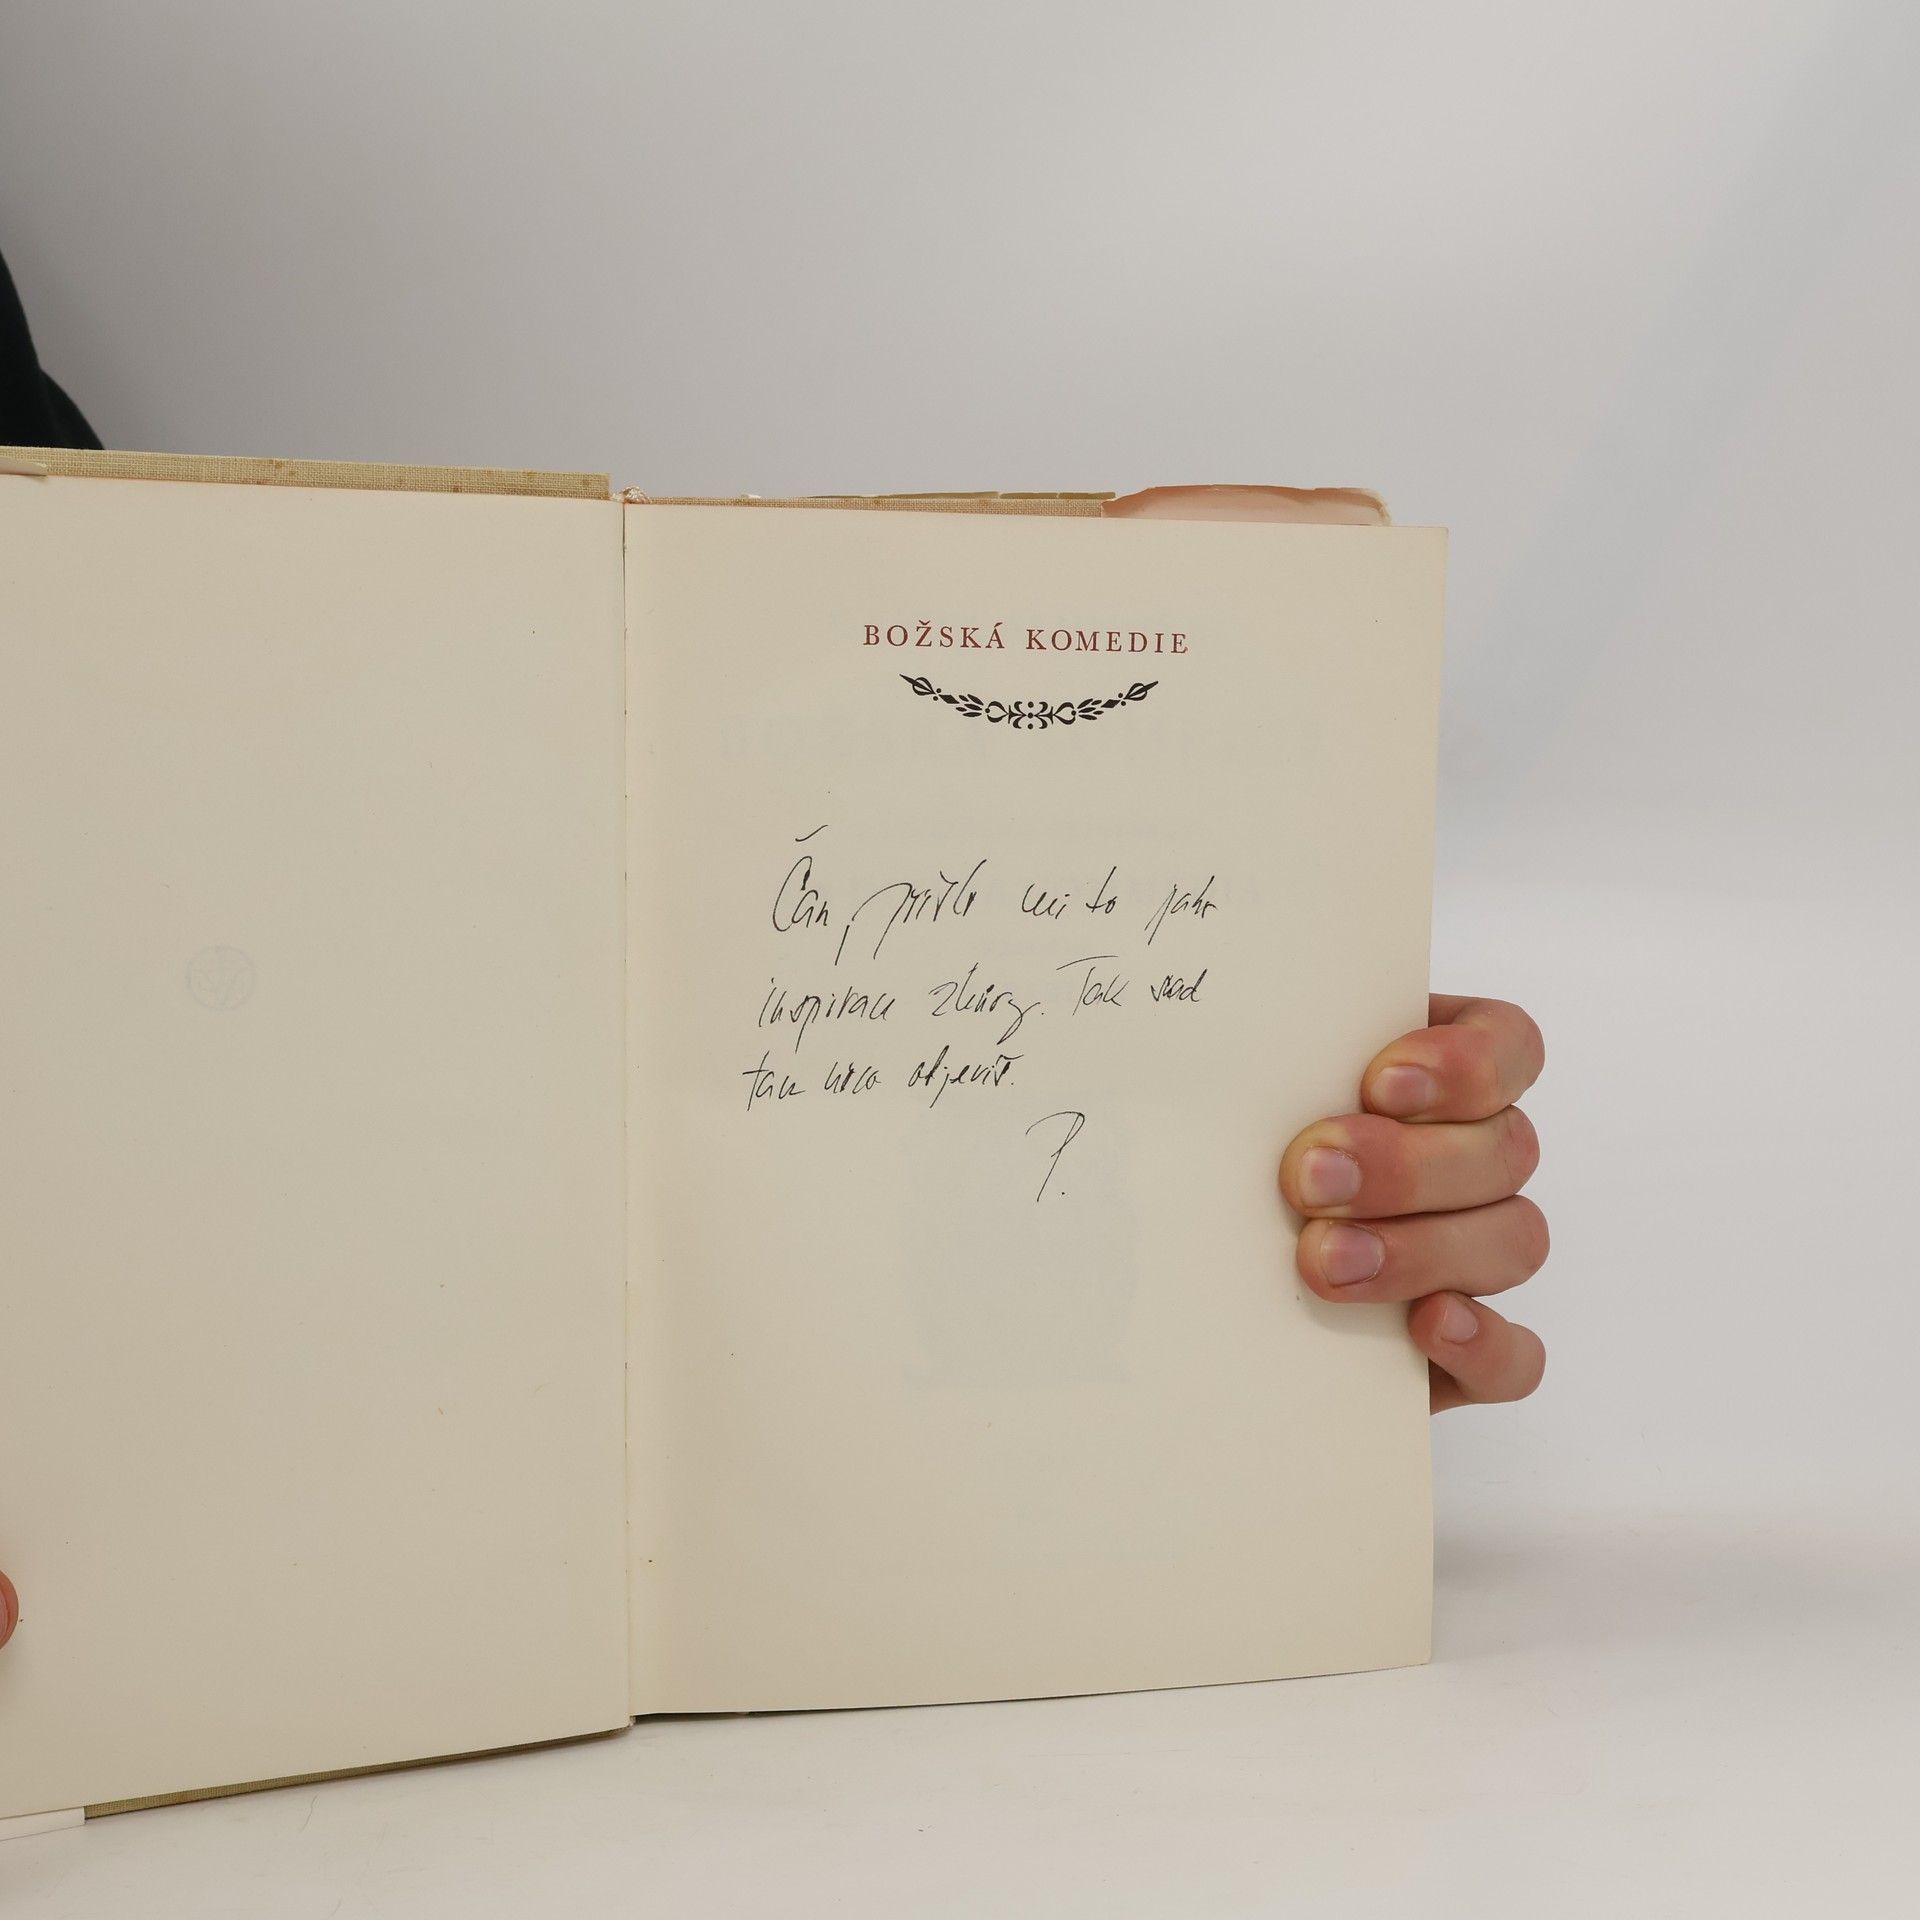 BOŽSKÁ KOMEDIE
Čan, přišlo mi to jako
inspirace shůry. Tak snad
tam něco objevíš.
P.